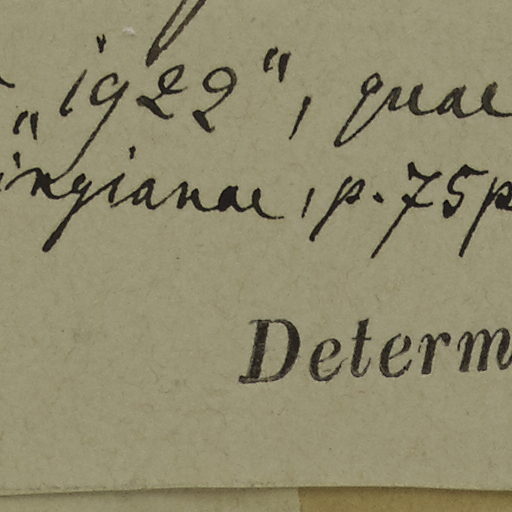 „1922“, quae
inxgianae, p. 75 p
Determ